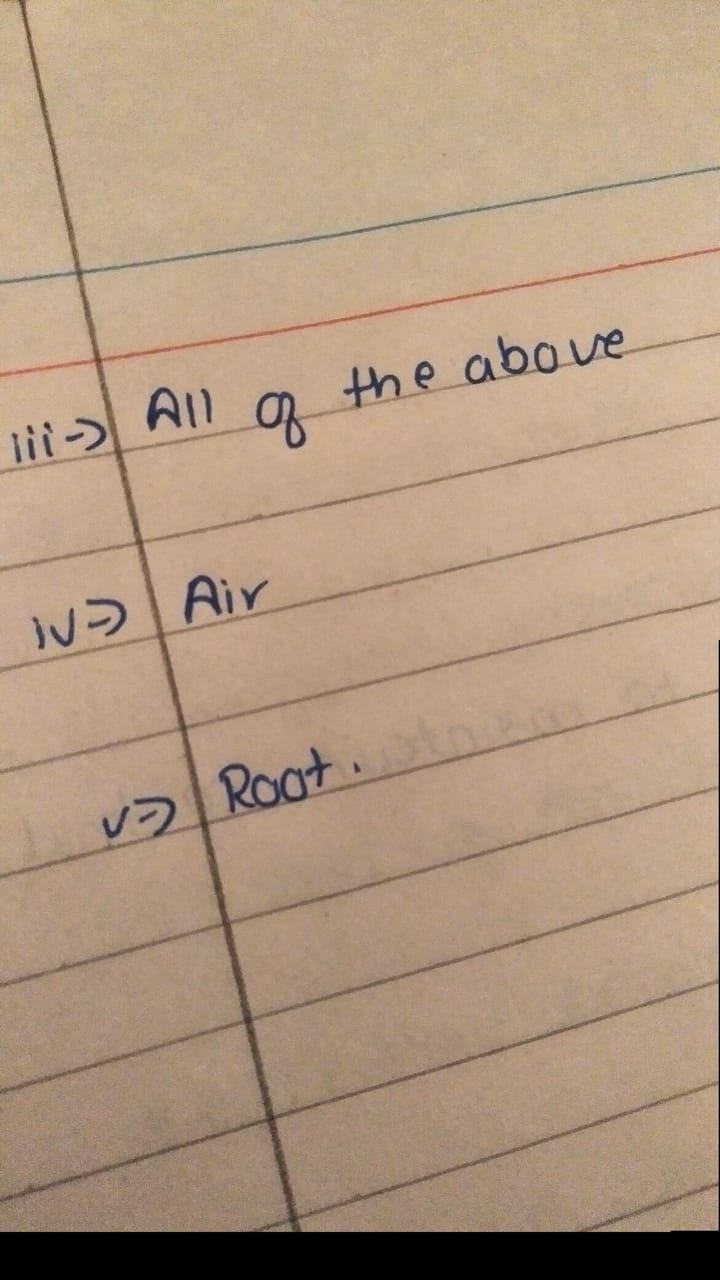 iii-> All of the above
iv=> Air
v=> Root.